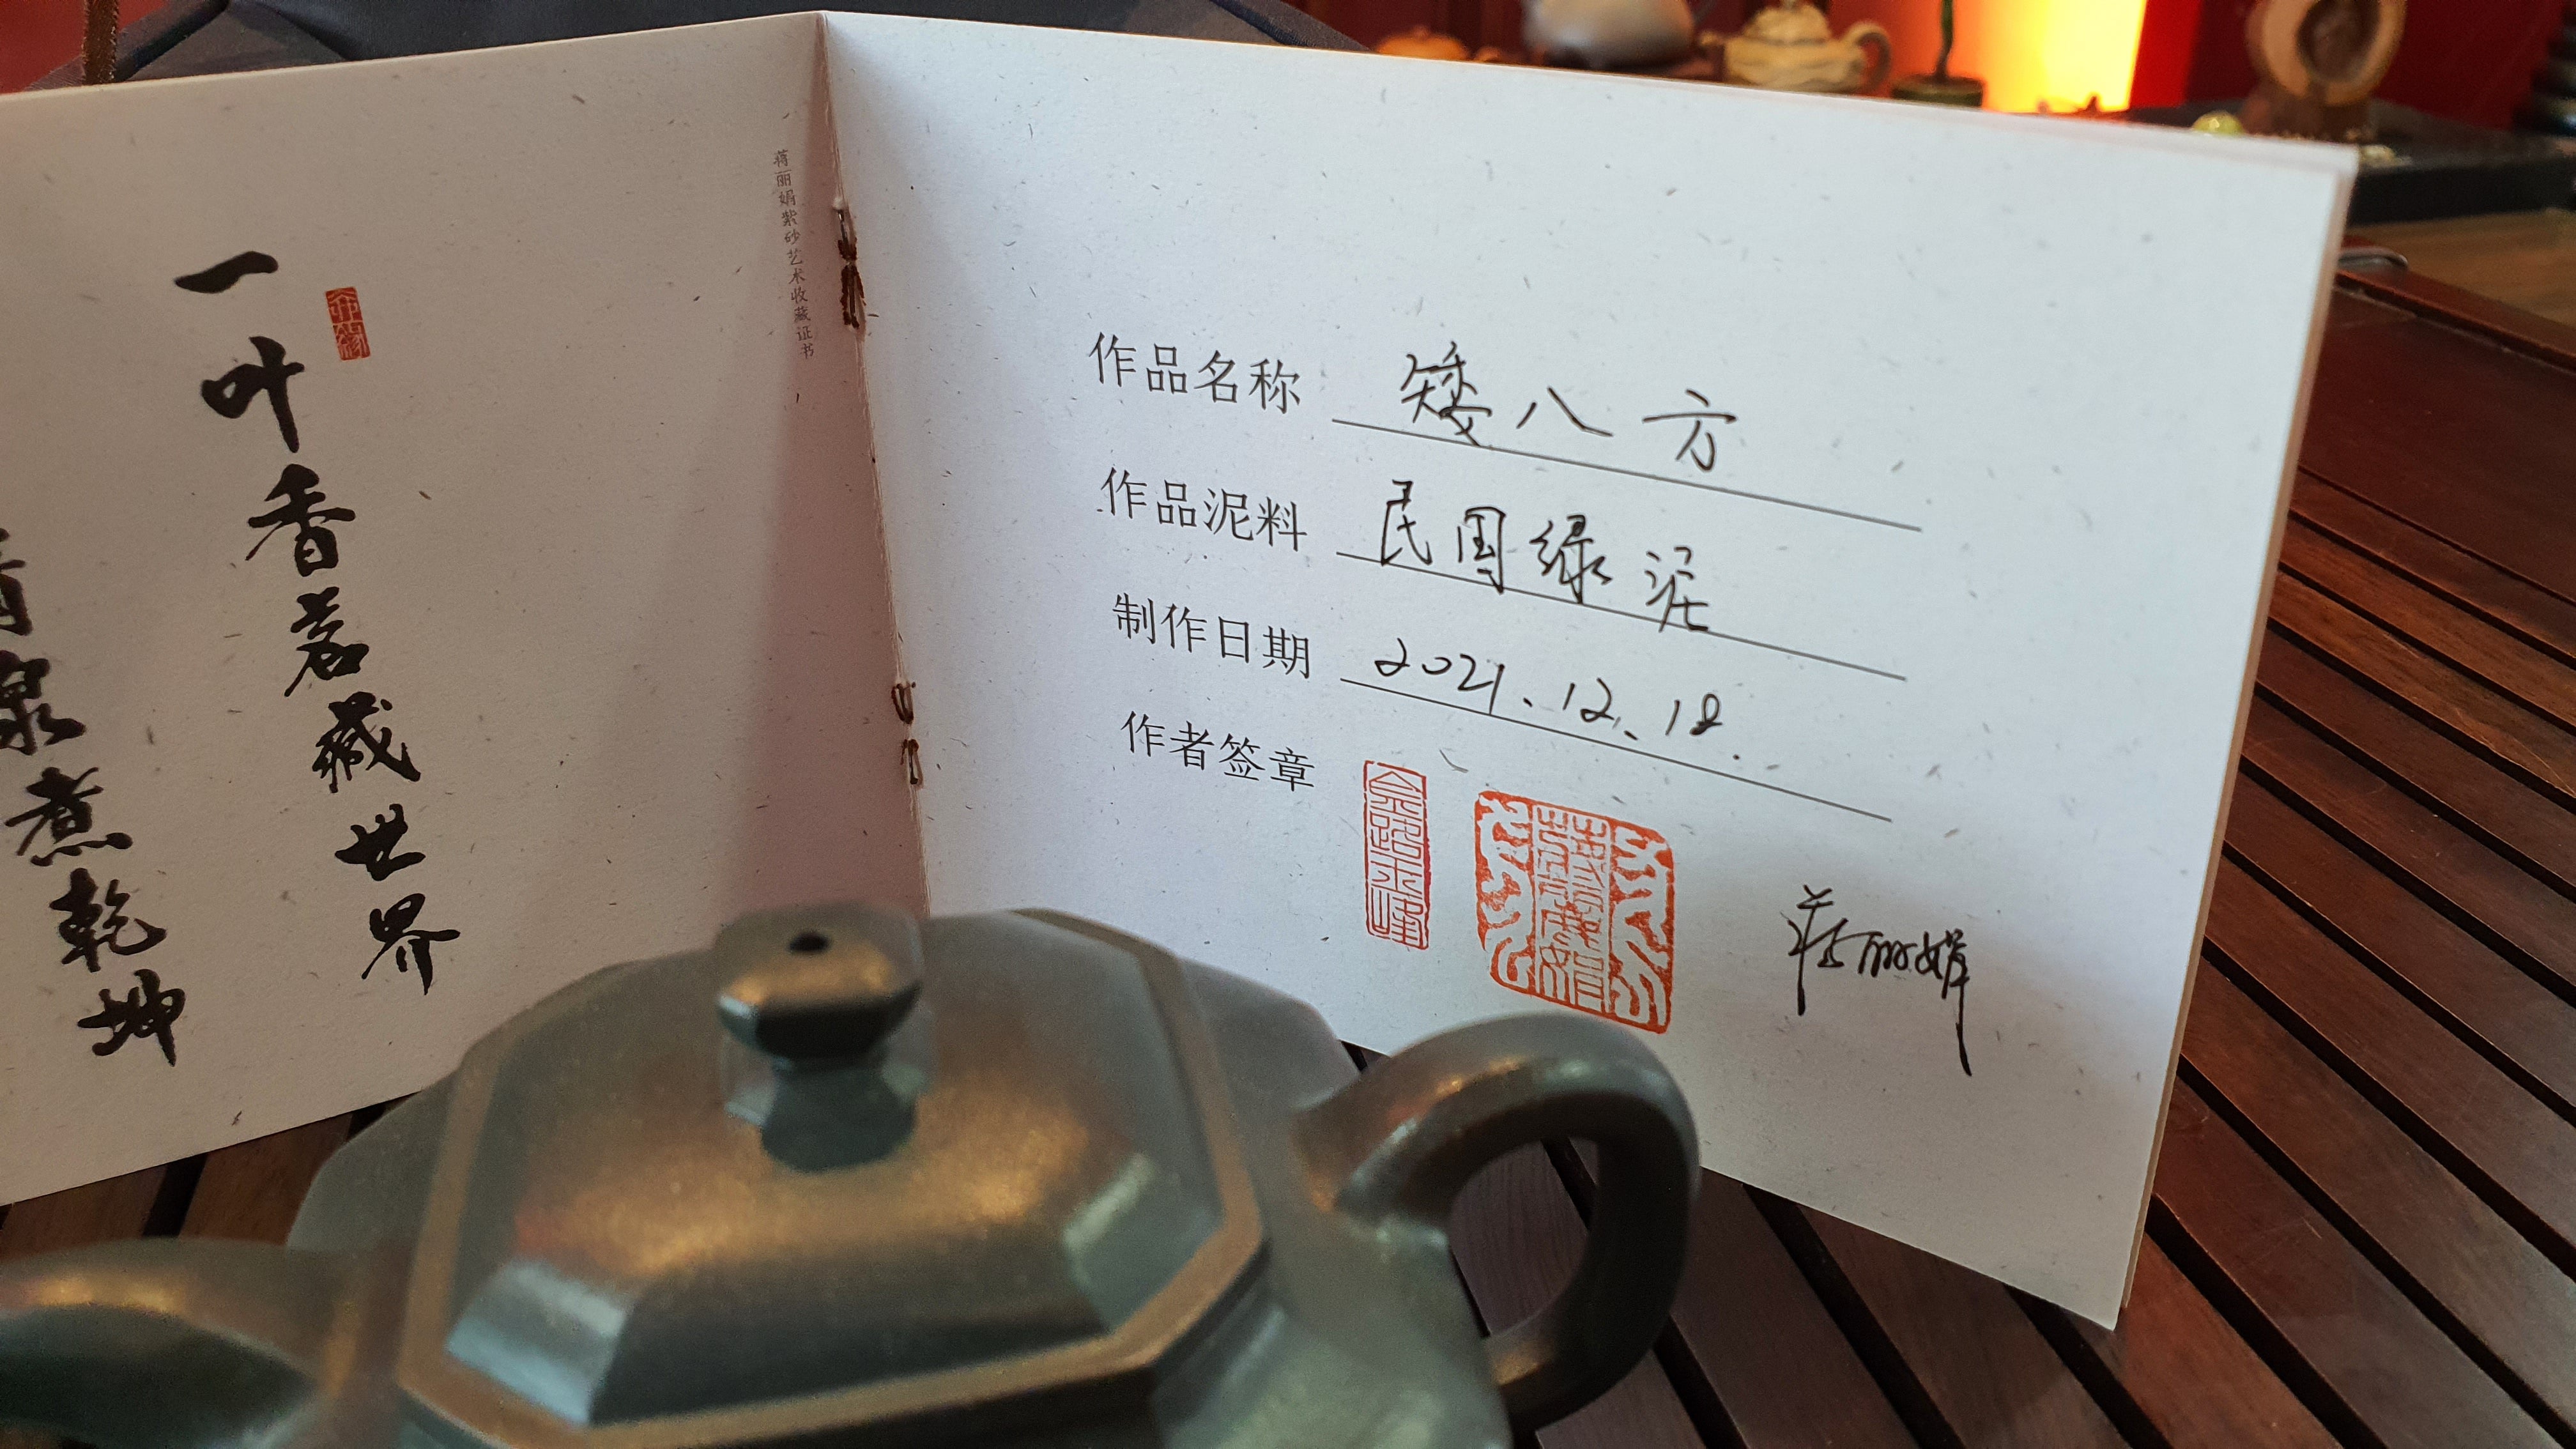 一叶香茗藏世界
泉煮乾坤
蒋丽娟紫砂艺术收藏证书
作品名称 矮八方
作品泥料 民国绿泥
制作日期 2021.12.18.
作者签章
蒋丽娟